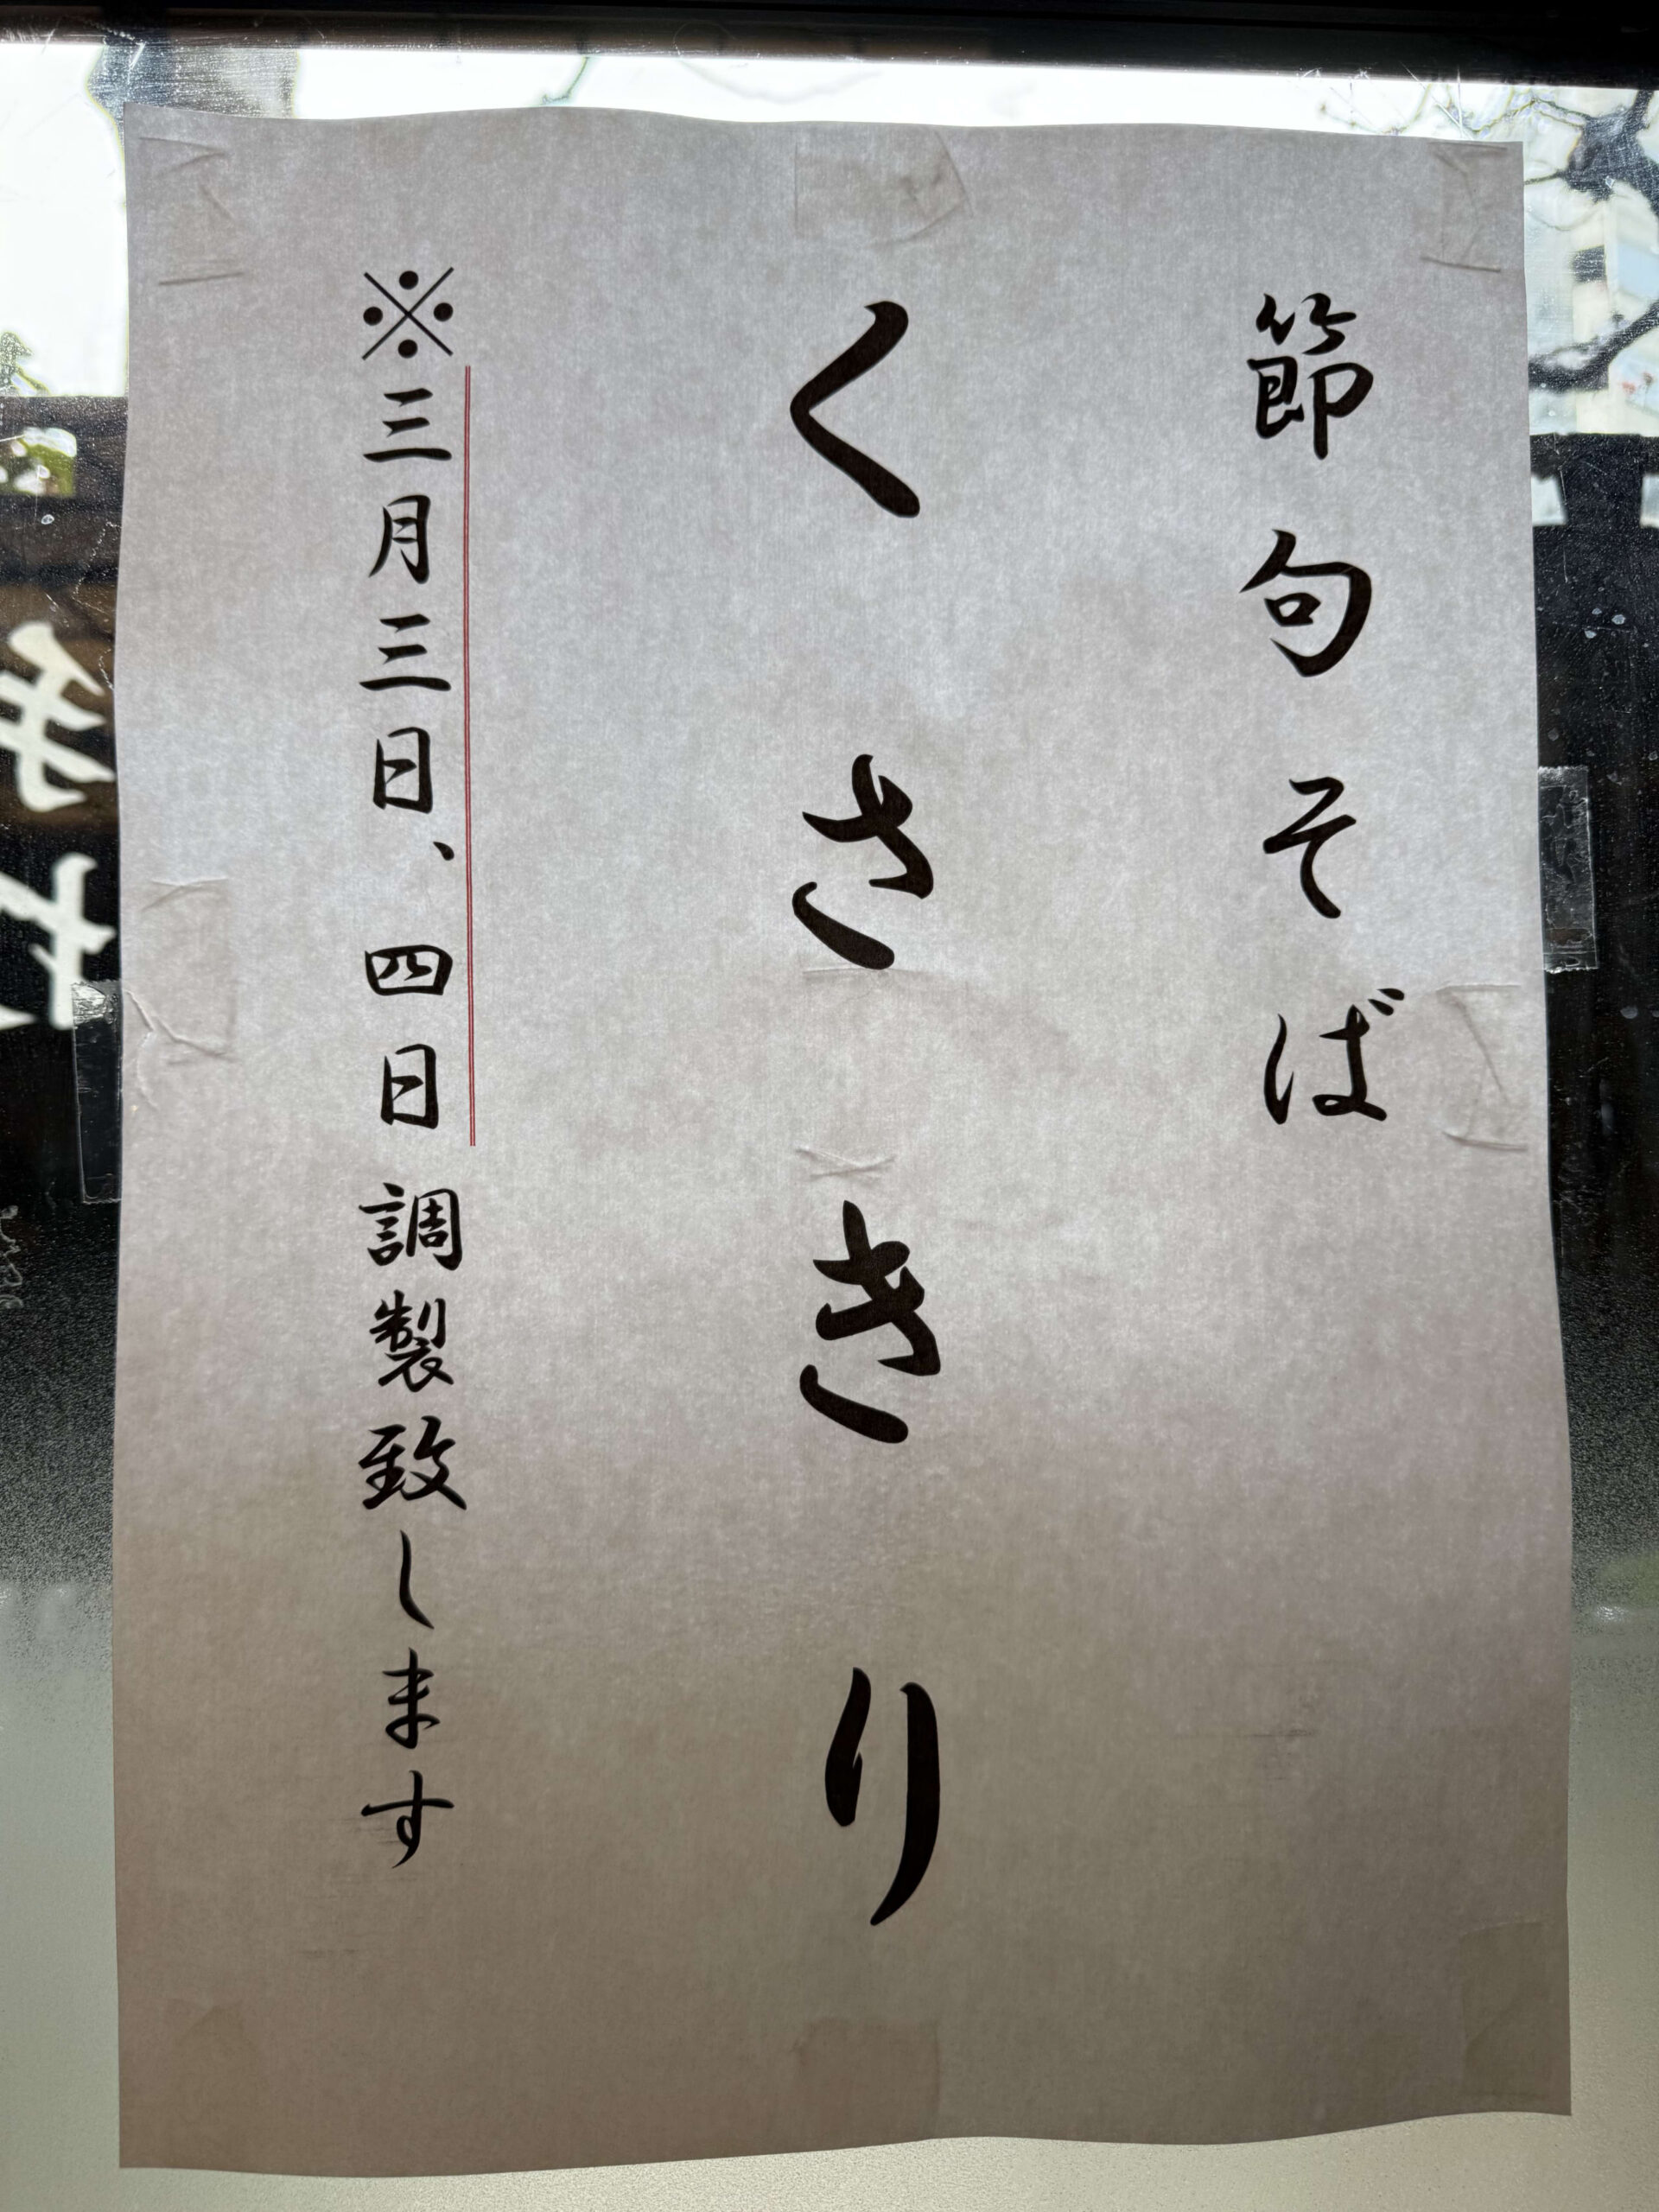 節句そば
くさきり
※三月三日、四日調製致します